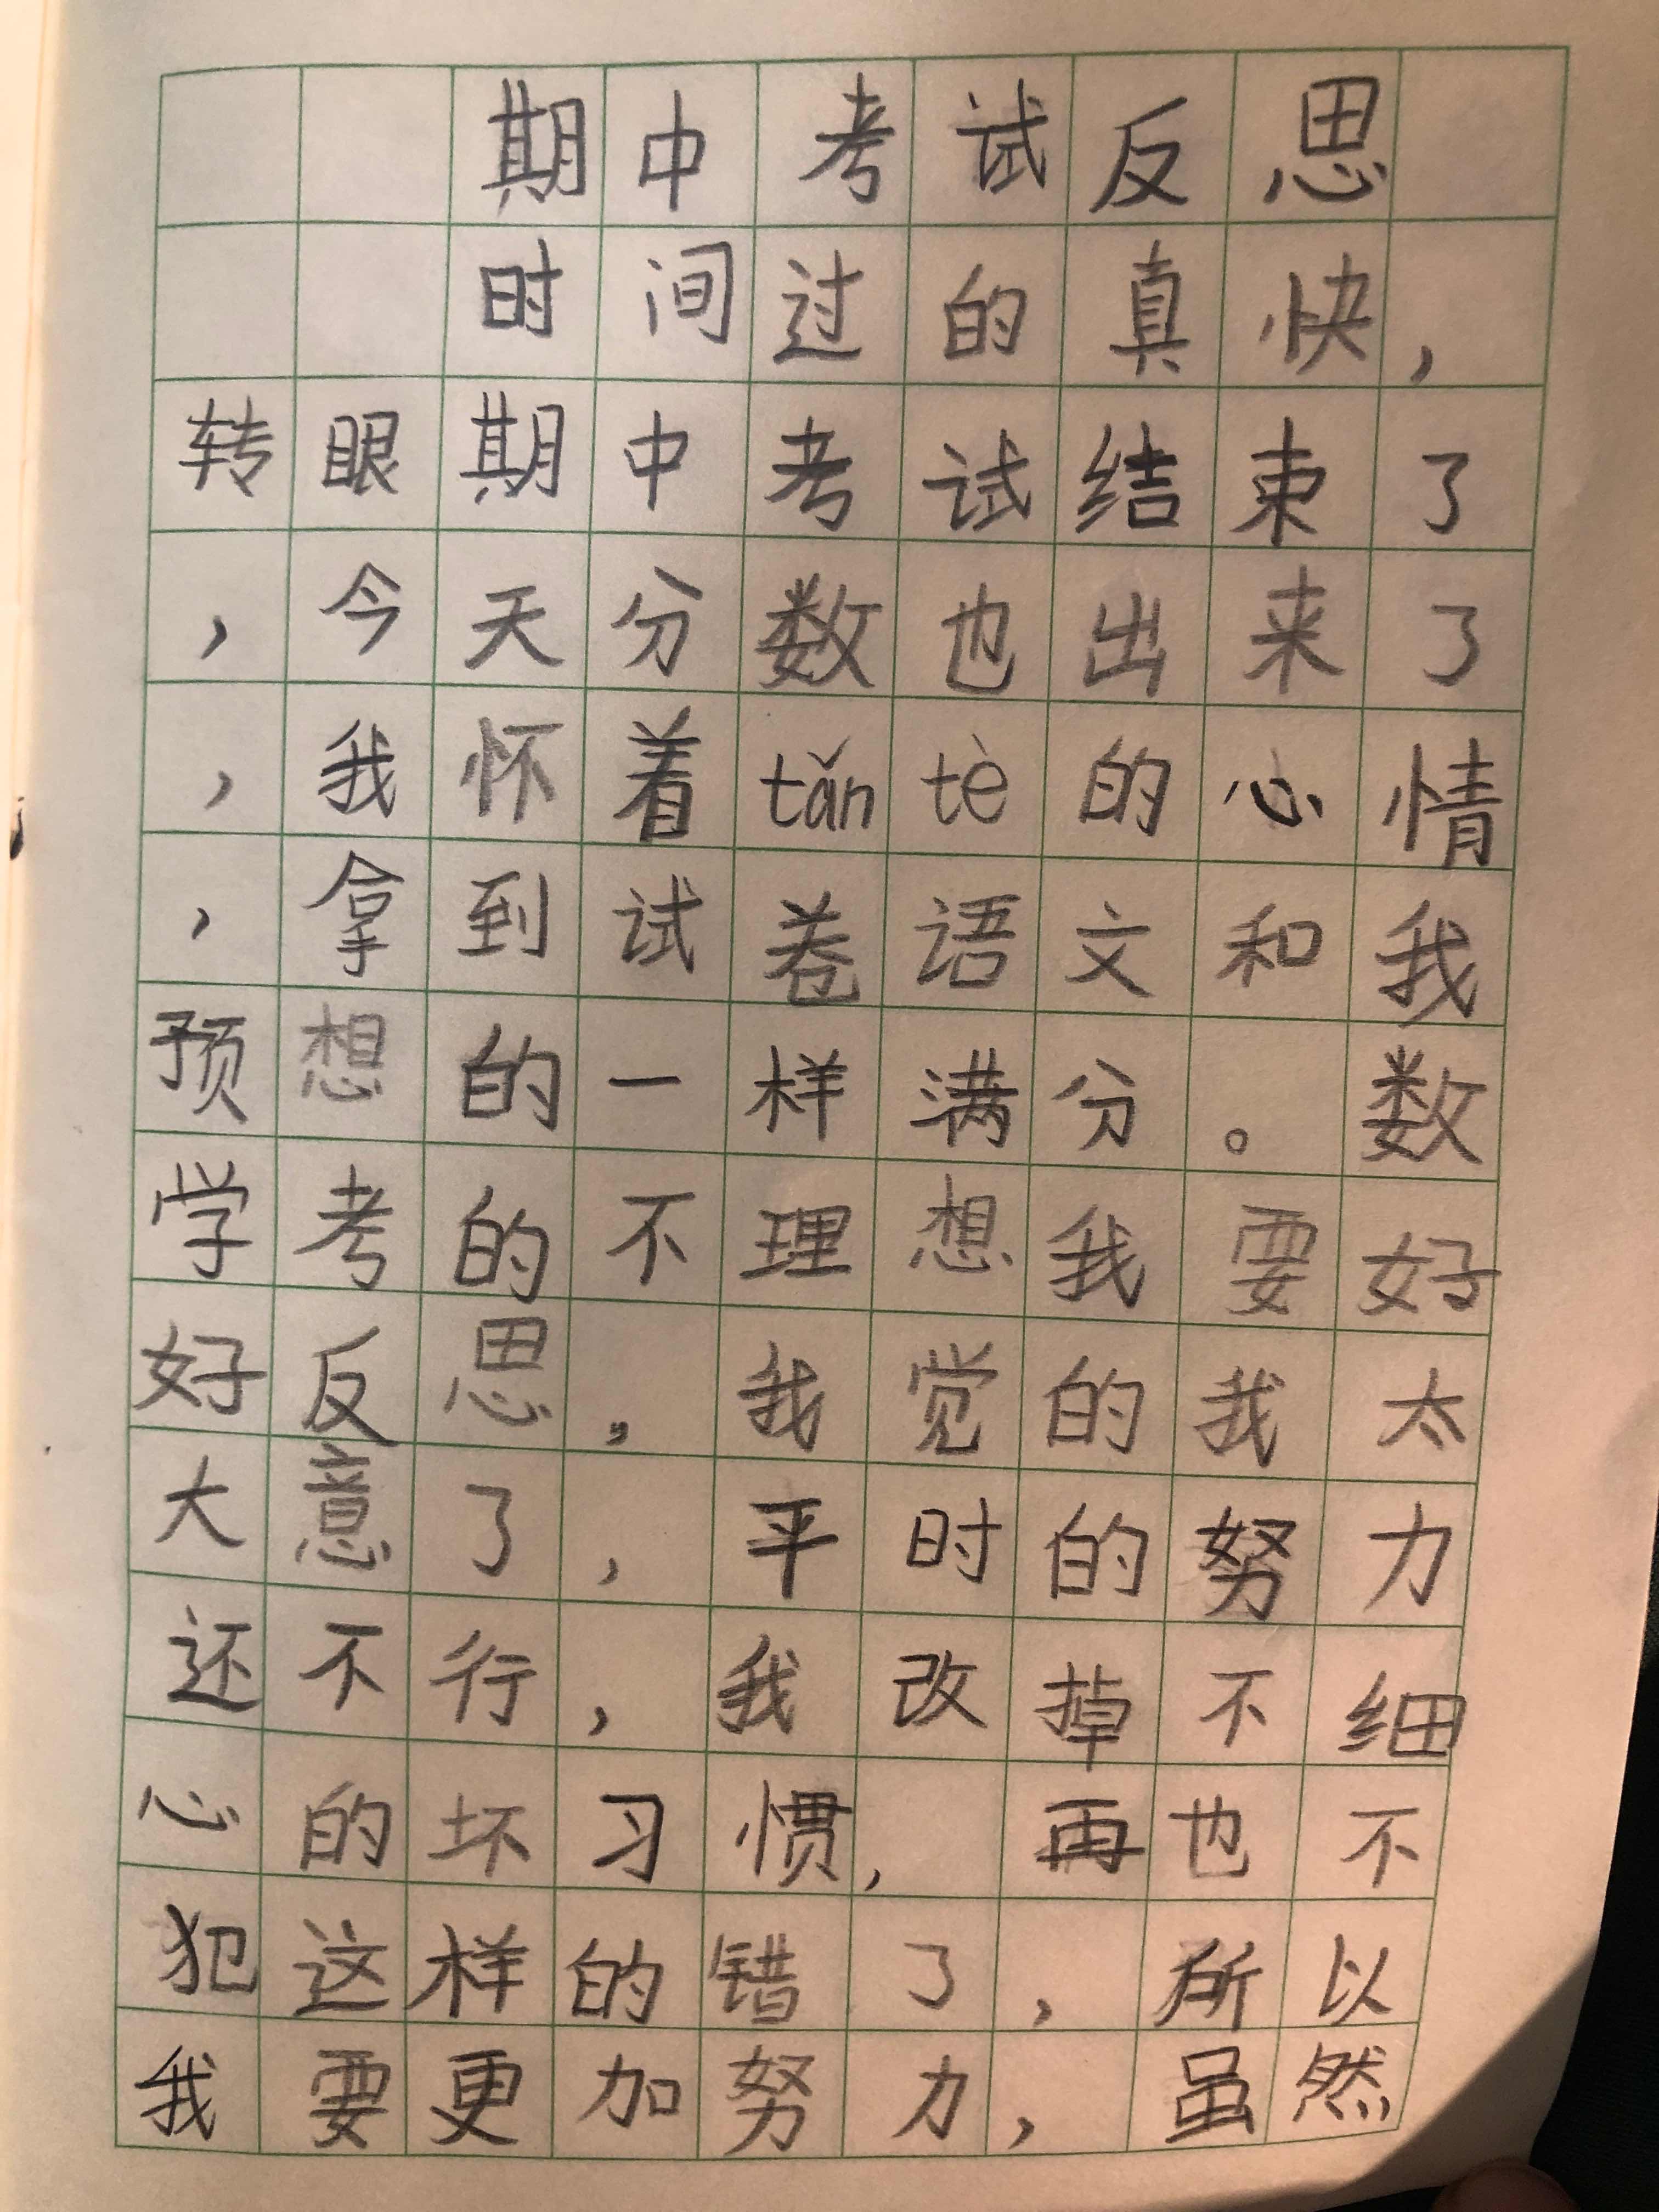 期中考试反思
时间过的真快，
转眼期中考试结束了
，今天分数也出来了
，我怀着tǎn tè的心情
，拿到试卷语文和我
预想的一样满分。数
学考的不理想我要好
好反思，我觉的我太
大意了，平时的努力
还不行，我改掉不细
心的坏习惯，再也不
犯这样的错了，所以
我要更加努力，虽然